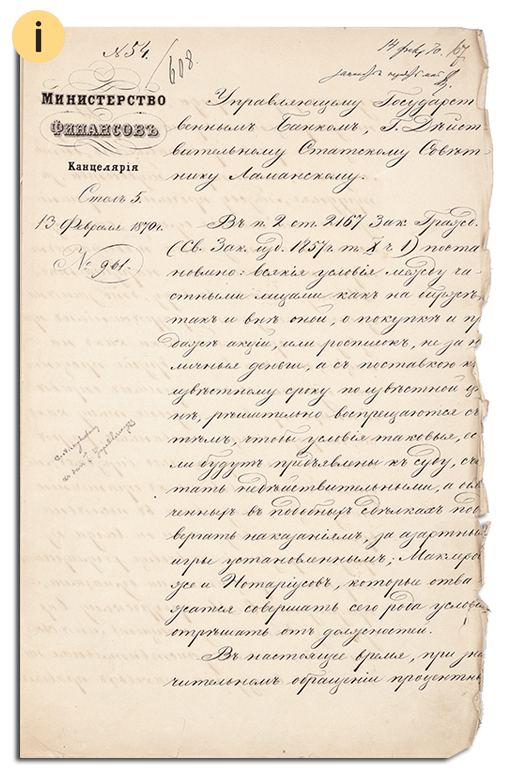 i
№ 54.
608.
14 февр. 70.
Министерство
Финансовъ
Канцелярія
Столъ 5.
13 Февраля 1870 г.
№ 961.
Управляющему Государст-
веннымъ Банкомъ, Г. Дѣйст-
вительному Статскому Совѣт-
нику Ламанскому.
Въ п. 2 ст. 2167 Зак. Гражд.
(Св. Зак. изд. 1857 г. т. X ч. 1) поста
новлено: всякія условія между ча-
стными лицами какъ на биржѣ,
такъ и внѣ оной, о покупкѣ и пр
дажѣ акцій, или росписокъ, не за н
личныя деньги, а съ поставкою к
извѣстному сроку по извѣстной ц
нѣ, рѣшительно воспрещаются съ
тѣмъ, чтобы условія таковыя, ес
ли будутъ предъявлены къ суду, сч
тать недѣйствительными, а ули
ченныхъ въ подобныхъ сдѣлкахъ под
вергать наказаніямъ, за азартныя
игры установленнымъ; Маклеро
же и Нотаріусовъ, которые отва
жатся совершать сего рода услов
отрѣшать отъ должностей.
Въ настоящее время, при зна
чительномъ обращеніи процентны